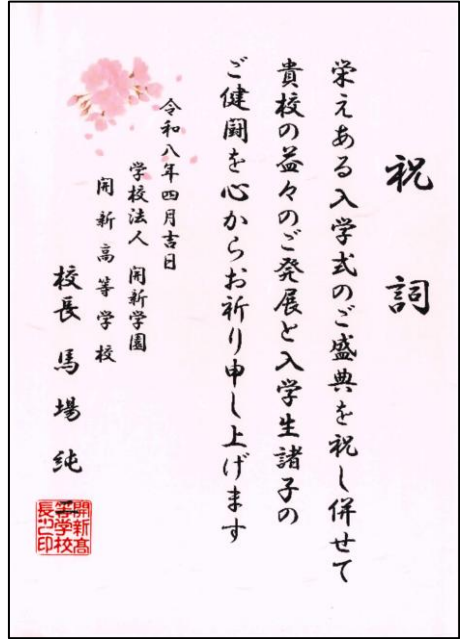 祝詞
栄えある入学式のご盛典を祝し併せて
貴校の益々のご発展と入学生諸子の
ご健闘を心からお祈り申し上げます
令和八年四月吉日
学校法人 開新学園
開新高等学校
校長 馬場純二
開新高
等学校
長之印